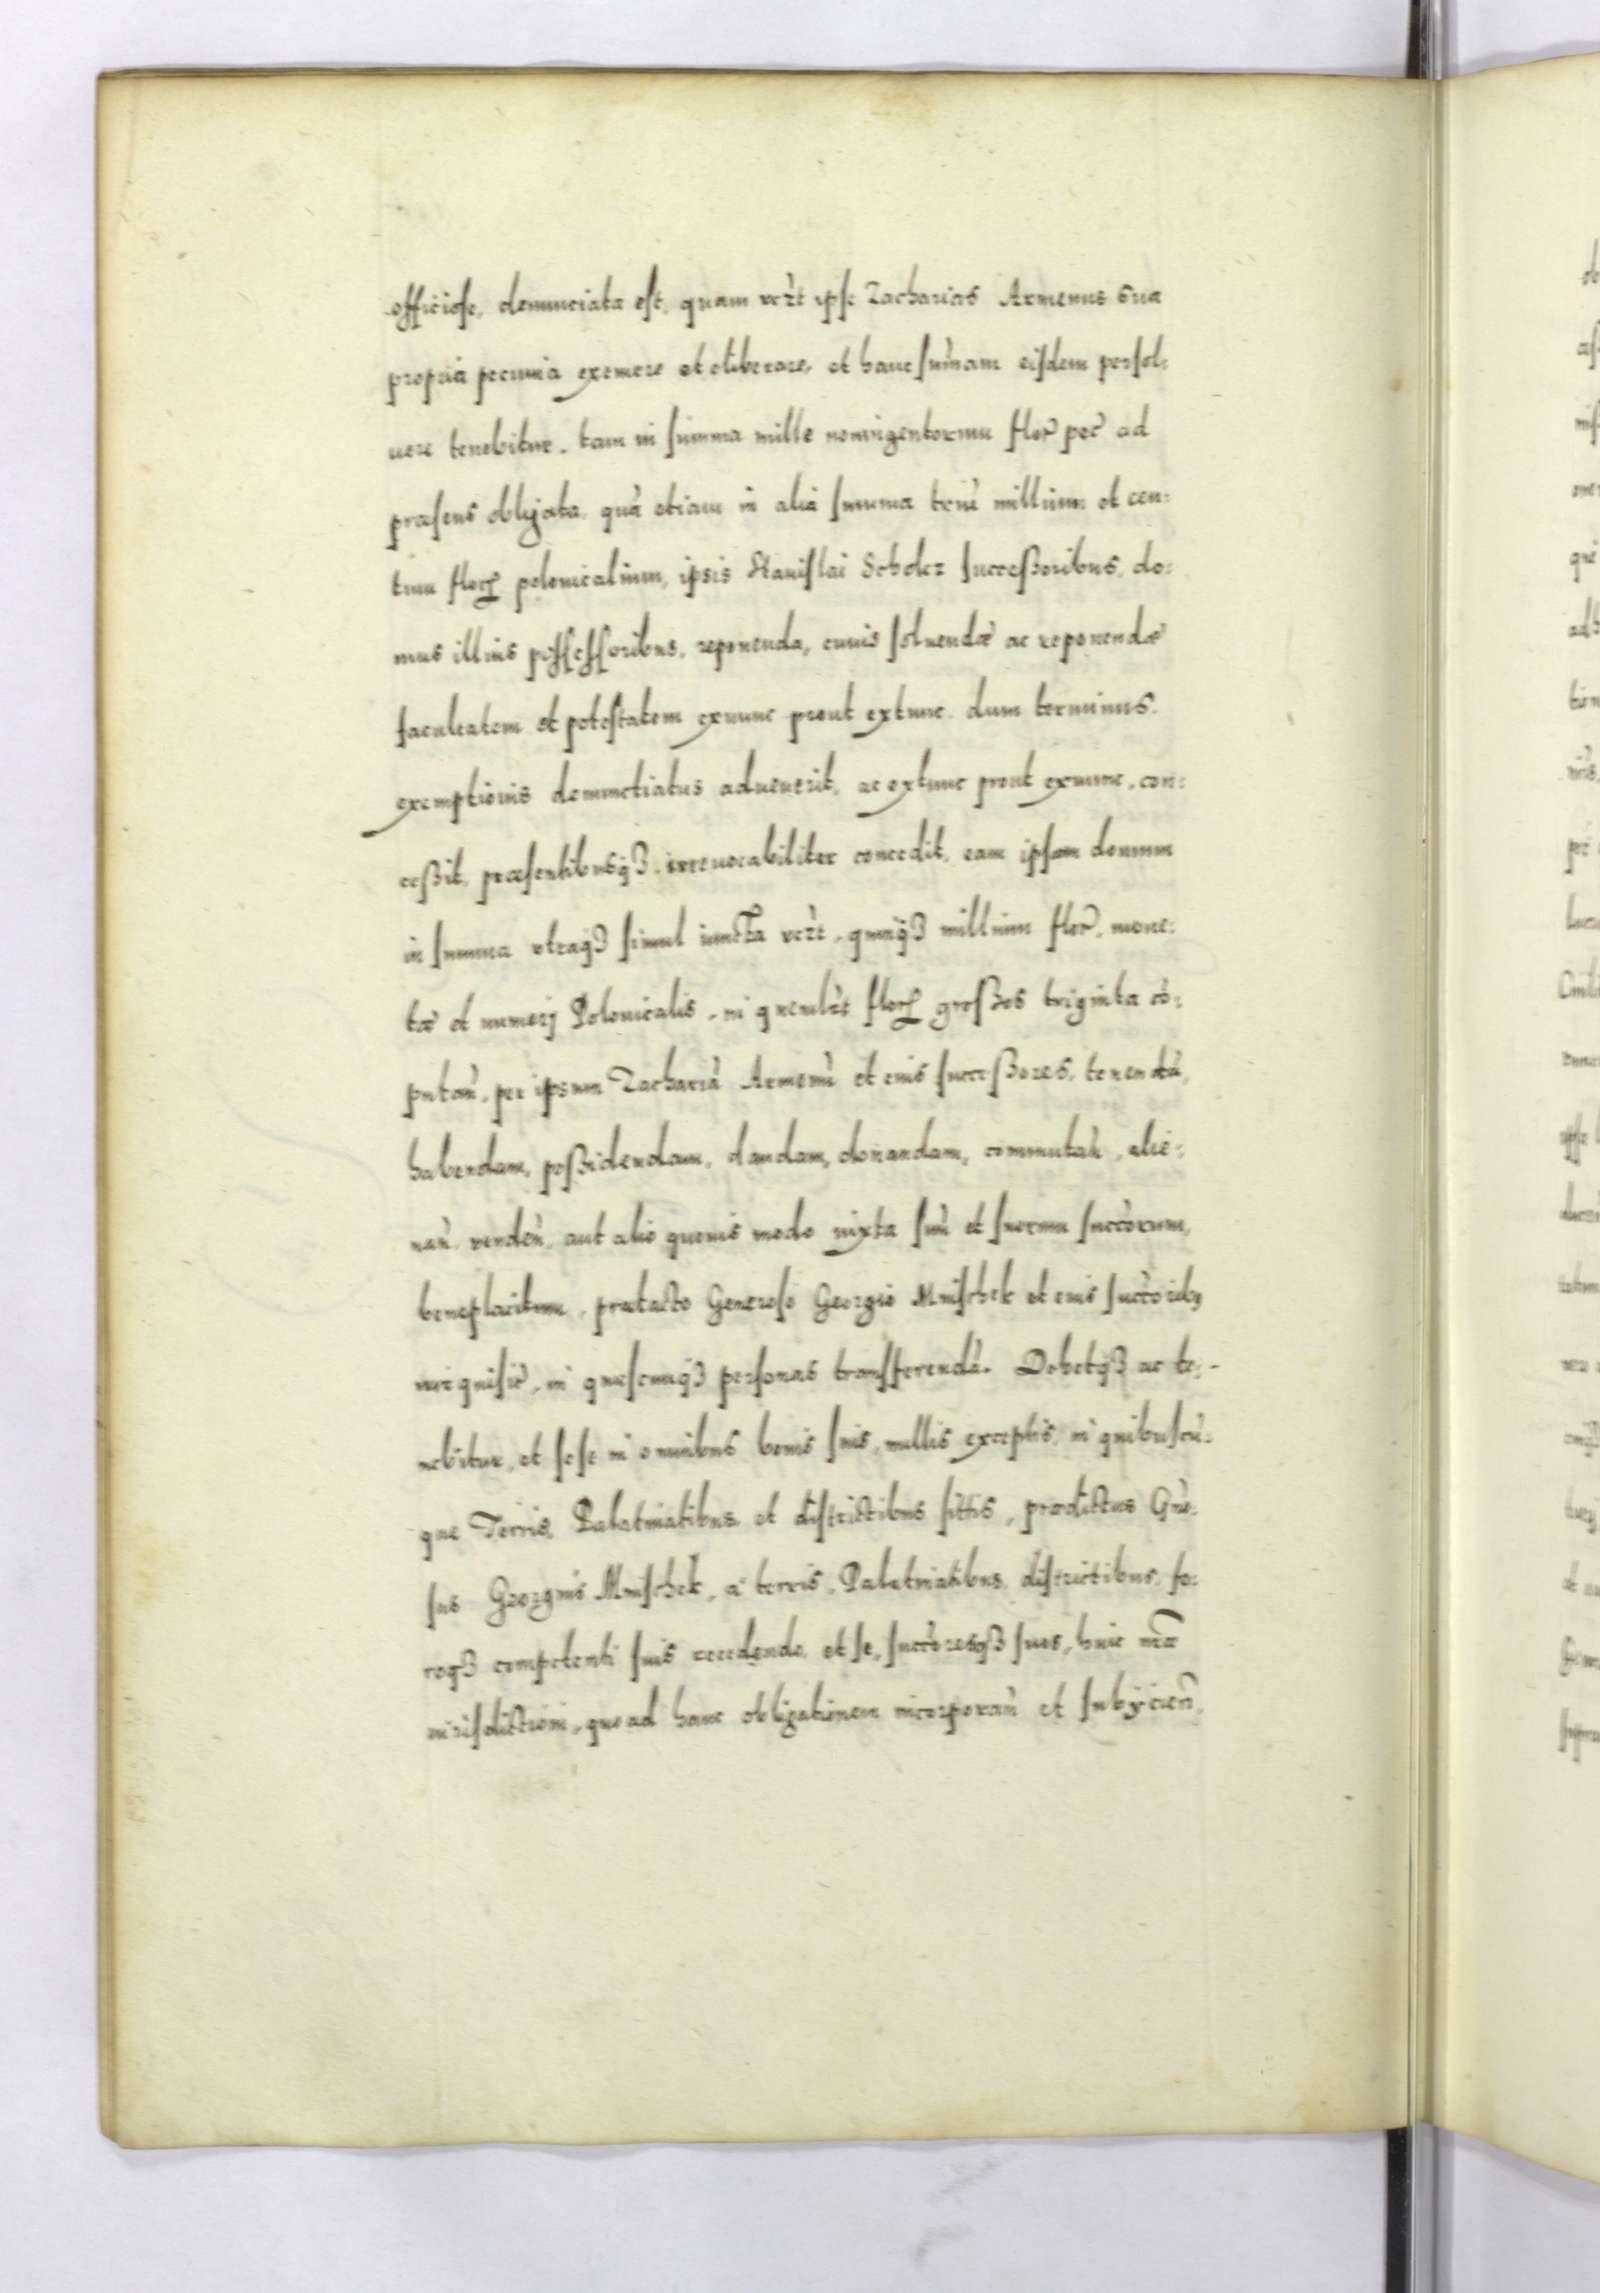 officiose, denunciata est, quam vert ipse Zacharias Armenus sua
propria pecunia eximere et eliberare, et hanc sum̃am eisdem persol:
uere tenebitur, tam in summa mille noningentorum flor̃ per ad
præsens obligata, quã etiam in alia summa triũ millium et cen:
tum flor̃ polonicalium, ipsis Stanislai Scholcz successoribus, do:
mus illius possessoribus, reponenda, cuius soluendæ ac reponendæ
facultatem et potestatem exnunc prout extunc, dum terminus
exemptionis denunctiatus aduenerit, ac extunc prout exnunc, con:
cessit, præsentibusq3 irreuocabiliter concedit, eam ipsam domum
in summa vtraq3 simul iuncta vert, quinq3 millium flor̃, mone:
tæ et numerj Polonicalis, in quemlibt flor̃ grosses triginta cõ:
putañ, per ipsum Zachariã Armenũ et eius successores, tenendã,
habendam, possidendam, dandam, donandam, commutañ, alie:
nañ, vendeñ, aut alio quouis modo iuxta suũ et suorum succ̃orum,
beneplacitum, prætacto Generoso Georgio Mnischek et eius succ̃orib9
, in quascunq3 personas transferendã. Debetq3 ac te:
nebitur, et sese in omnibus bonis suis, nullis exceptis, in quibuscũ:
que Terris, Palatinatibus et districtibus sittis, prædictus Gñro:
sus Georgius Mnischek, a terris, Palatinatibus, districtibus, fo:
roq3 competenti suis recedendo, et se, succ̃oresq3 suos, huic nr̃æ
iurisdictioni, quo ad hanc obligationem incorporañ et subijcieñ,